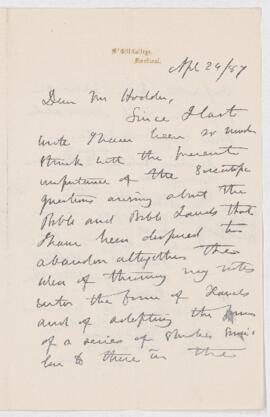 McGill College,
Montreal.
Apl 24/87
Dear Mr Hodder,
Since I last
wrote I have been so much
struck with the present
importance of the Scientific
questions arising about the
Bible and Bible Lands that
I have been disposed to
abandon altogether the
idea of throwing my notes
into the form of Travels
and of adopting the form
of a series of studies simi-
lar to those in the